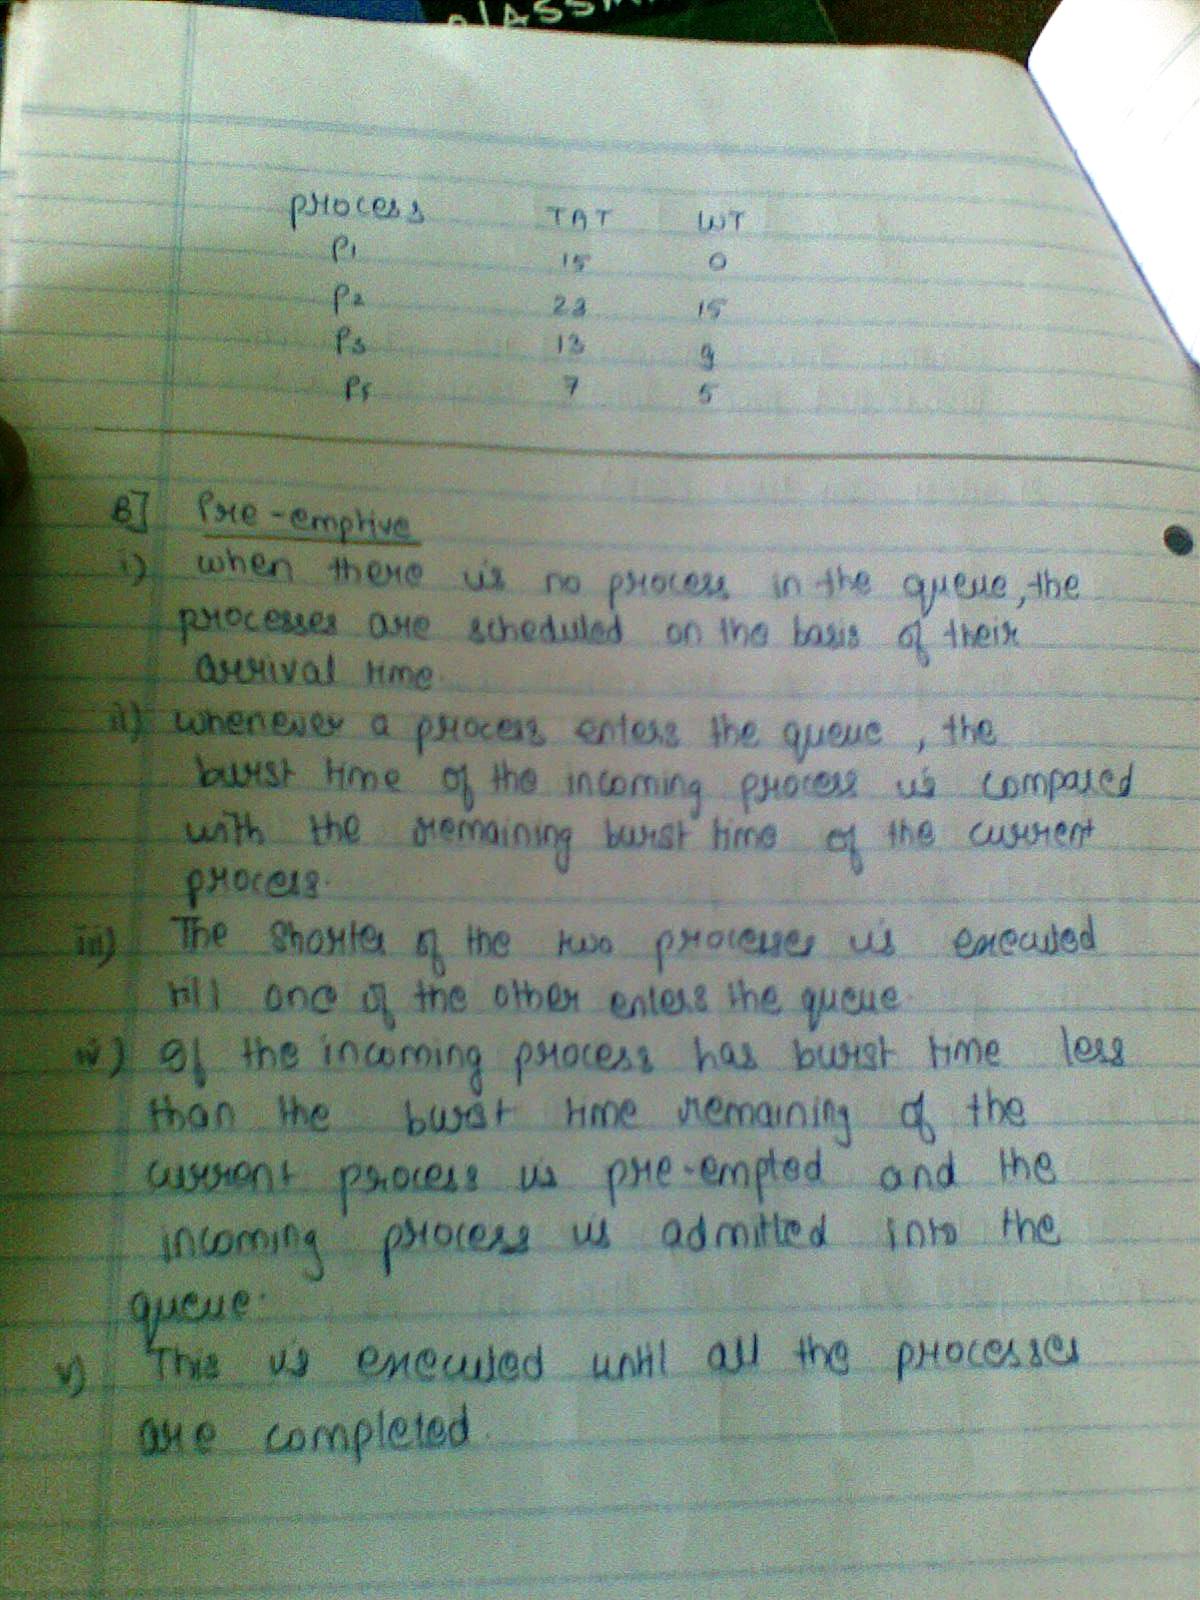 process TAT WT
P1 15 0
P2 23 15
P3 13 9
7 5
B] Pre-emptive
i) when there is no process in the queue, the
processes are scheduled on the basis of their
arrival time.
ii) whenever a process enters the queue, the
burst time of the incoming process is compared
with the remaining burst time of the current
process.
iii) The shorter of the two processes is executed
till one of the other enters the queue.
iv) If the incoming process has burst time less
than the burst time remaining of the
current process is pre-empted and the
incoming process is admitted into the
queue.
v) This is executed until all the processes
are completed.